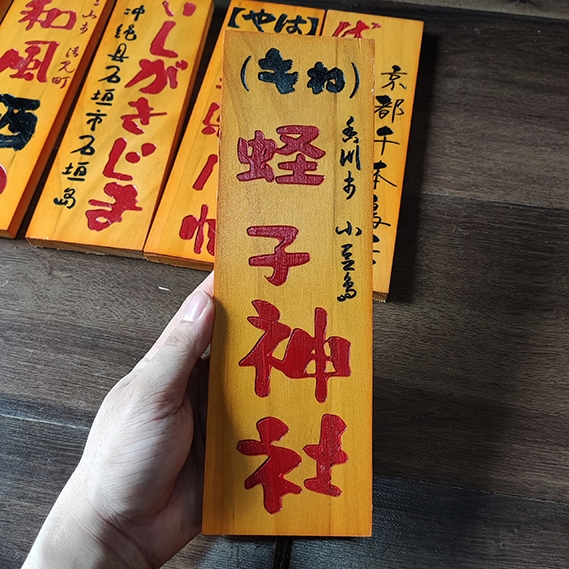 和風
酒
いしがきじま
沖縄県石垣市石垣島
【やは】
(きね)
蛏子神社
香川市 小豆島
京都千本